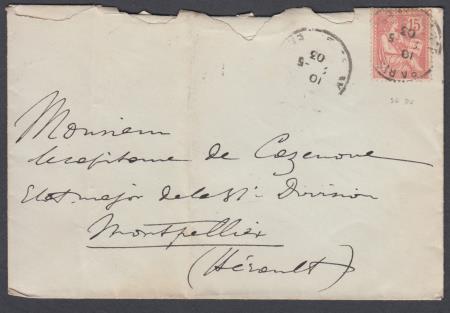 15
10
5
03
10
5
03
PARIS
Monsieur
le capitaine de Cazenove
Etat major de la 31e Division
Montpellier
(Hérault)